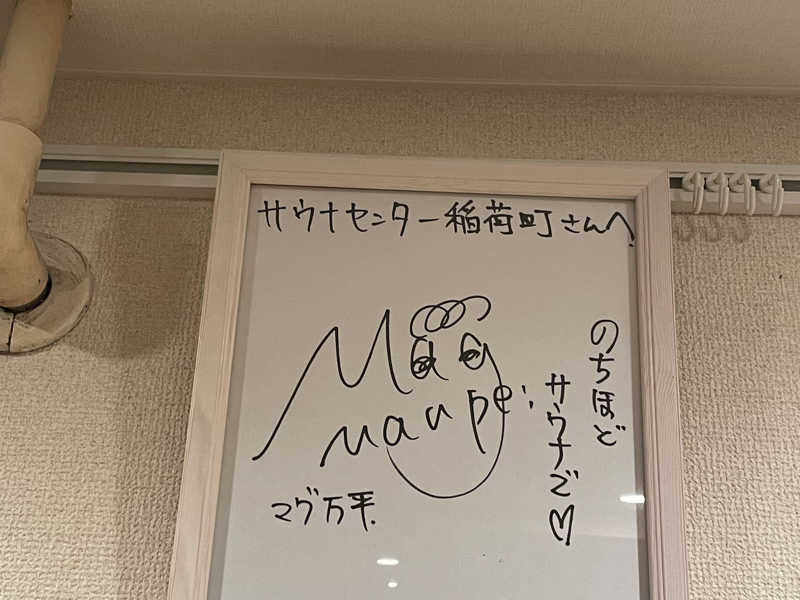 サウナセンター稲荷町さんへ
Mag
manpei
マグ万平.
のちほど
サウナで♡